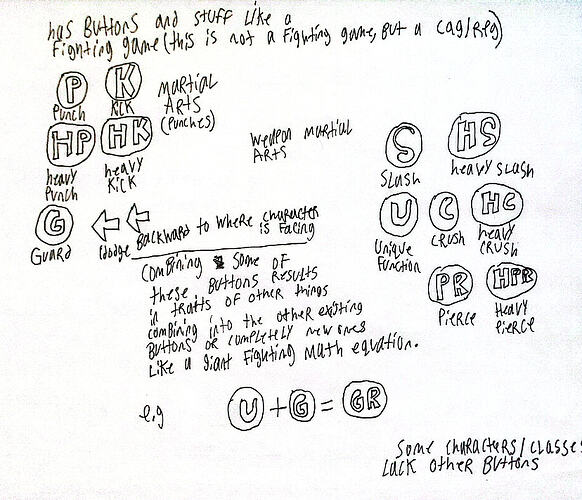 has Buttons and stuff like a
fighting game (this is not a fighting game, but a cag/rpg)
P
K
Punch
Kick
Martial
Arts
(Punches)
HP
HK
heavy
Punch
heavy
Kick
Weapon martial
Arts
S
HS
Slash
heavy slash
U
C
HC
Unique
Function
crush
heavy
crush
PR
HPR
Pierce
Heavy
Pierce
G
Guard
Dodge
Backward to where character
is facing
Combining some of
these buttons results
in traits of other things
combining into the other existing
buttons or completely new ones
like a giant fighting math equation.
e.g
U + G = GR
some characters/classes
lack other buttons